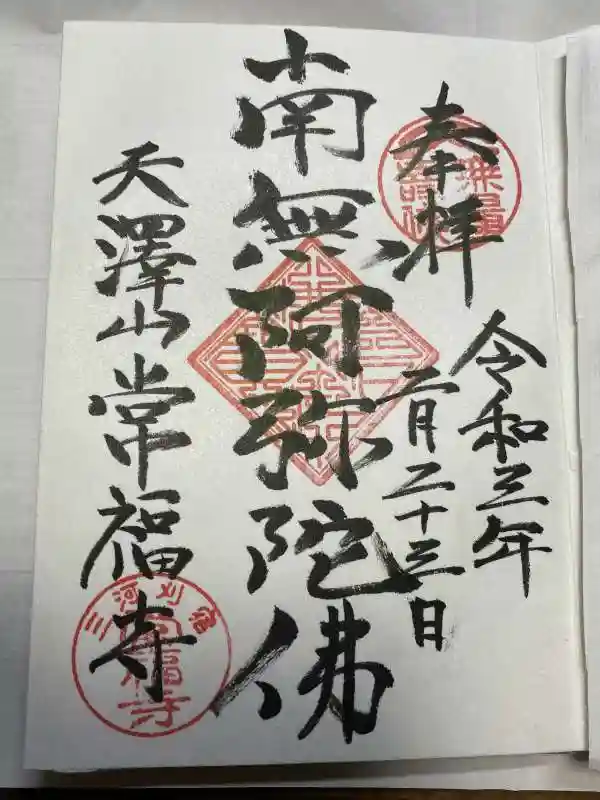 奉拝
令和三年
二月二十三日
南無阿弥陀佛
天澤山常福寺
三河刈宿
常福寺